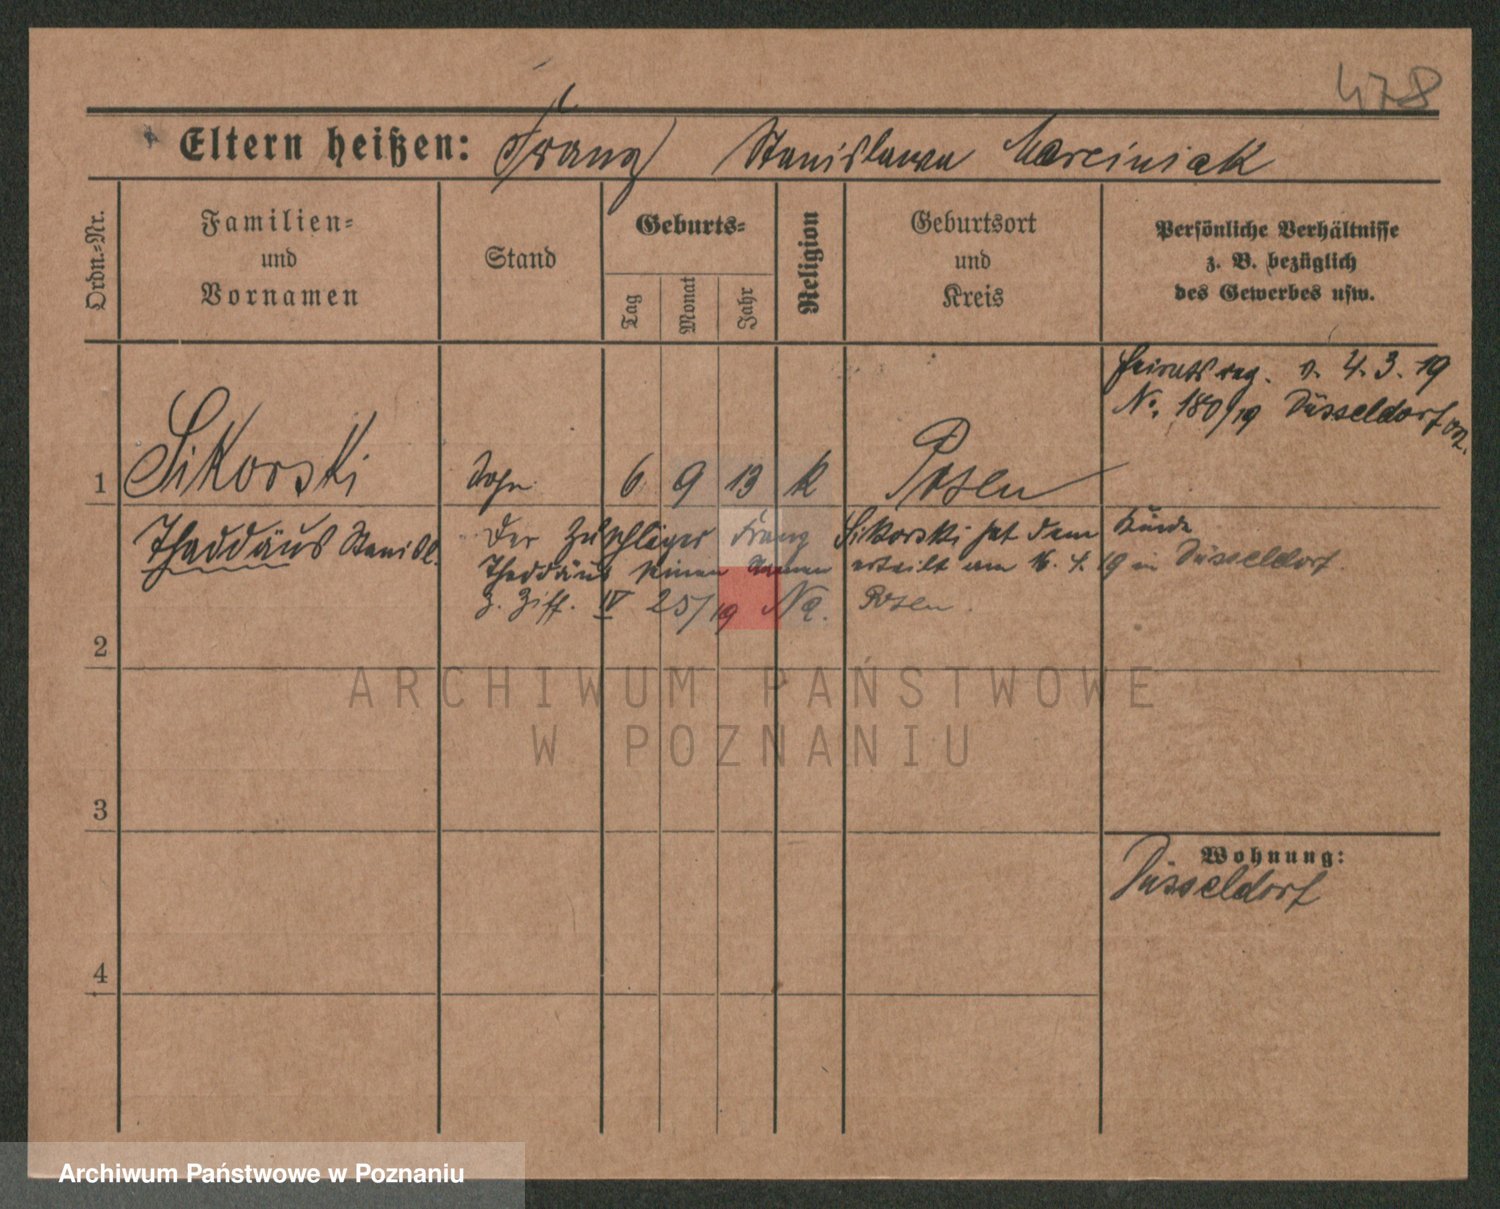 478
Eltern heißen: Franz Stanislawa Marciniak
Ordn.-Nr.
Familien-
und
Vornamen
Stand
Geburts-
Tag
Monat
Jahr
Religion
Geburtsort
und
Kreis
Persönliche Verhältnisse
z. B. bezüglich
des Gewerbes usw.
Heirats reg. v. 4. 3. 19
No. 180/19 Düsseldorf
1 Sikorski Sohn 6 9 13 k Posen
Thaddäus Stanisl. Der Zuschläger Franz Sikorski hat dem Kinde
Thaddäus seinen Namen erteilt am 16. 4. 19 in Düsseldorf.
z. Ziff. IV 25/19 Posen.
2
ARCHIWUM PAŃSTWOWE
W POZNANIU
3
Wohnung:
Düsseldorf
4
Archiwum Państwowe w Poznaniu